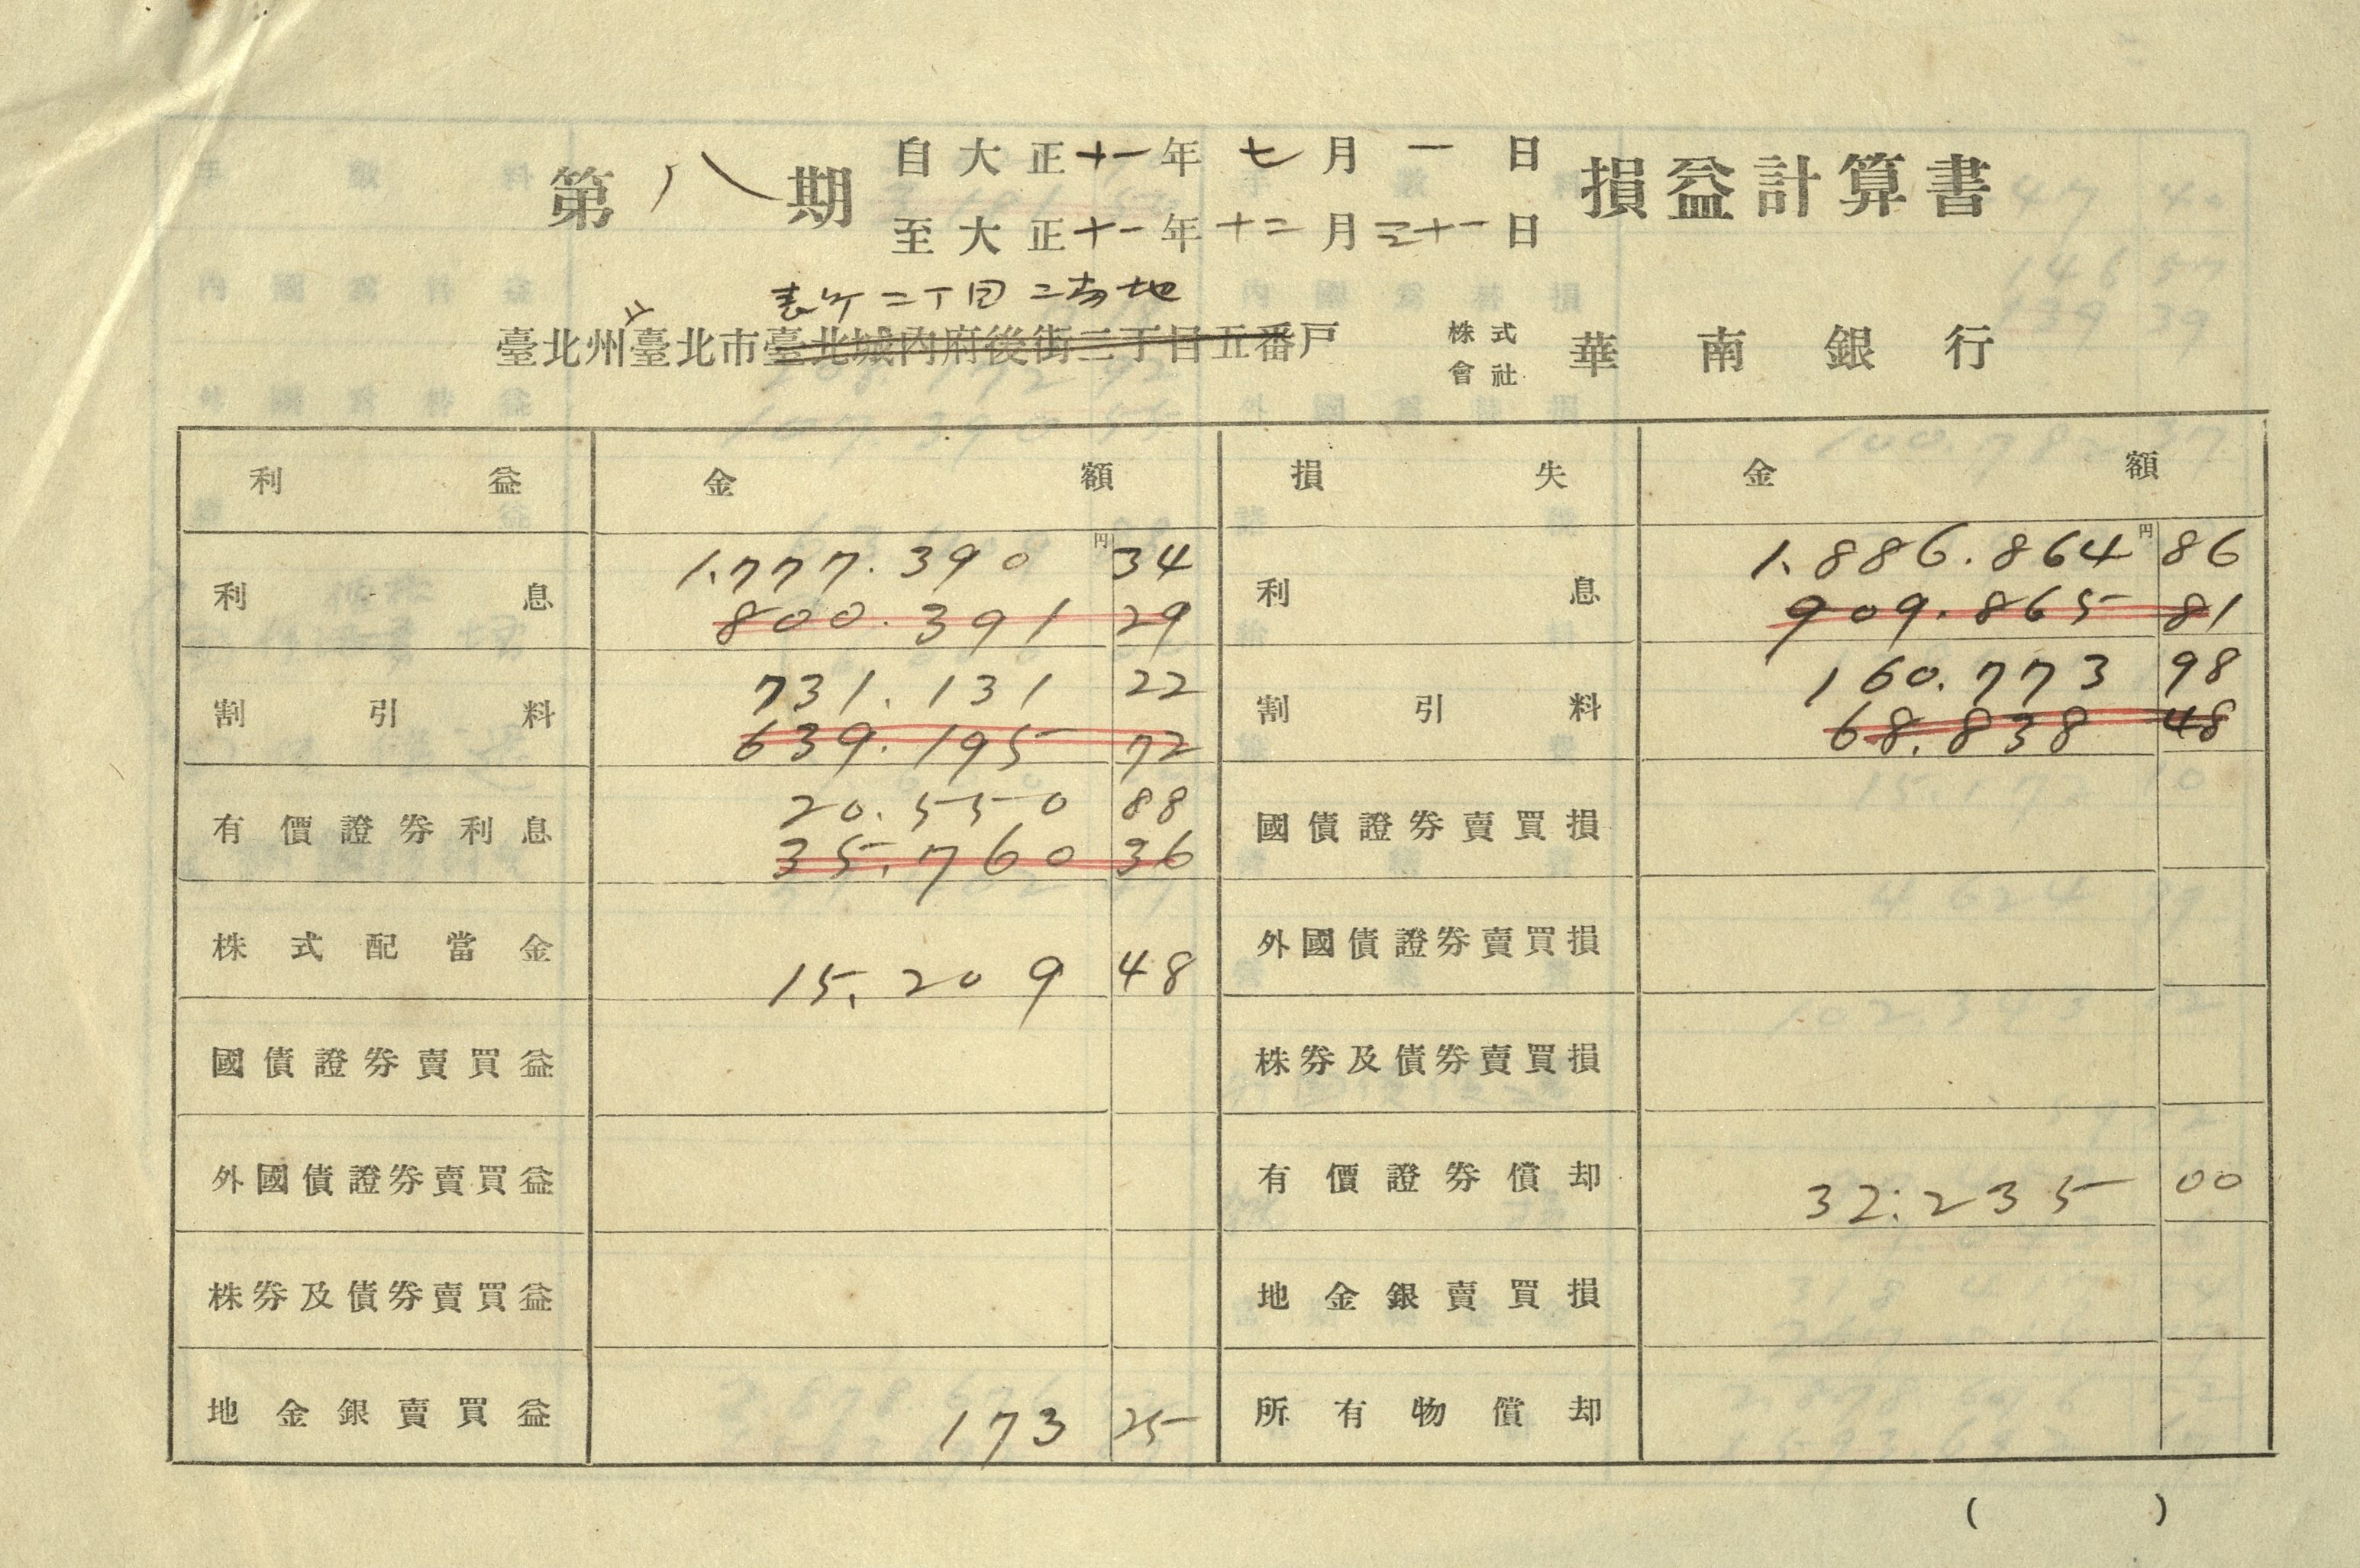 第八期 自大正十一年七月一日 損益計算書
至大正十一年十二月三十一日
表町二丁目二番地
臺北州臺北市臺北城内府後街三丁目五番戸 株式會社 華南銀行
利益 金額 損失 金額
利息 円 1.777.390 34 利息 円 1.886.864 86
800.391 29 909.865 81
割引料 731.131 22 割引料 160.773 98
639.195 72 68.838 48
有價證券利息 20.550 88 國債證券賣買損
35.760 36
株式配當金 15.209 48 外國債證券賣買損
國債證券賣買益 株券及債券賣買損
外國債證券賣買益 有價證券償却 32.235 00
株券及債券賣買益 地金銀賣買損
地金銀賣買益 173 25 所有物償却
( )